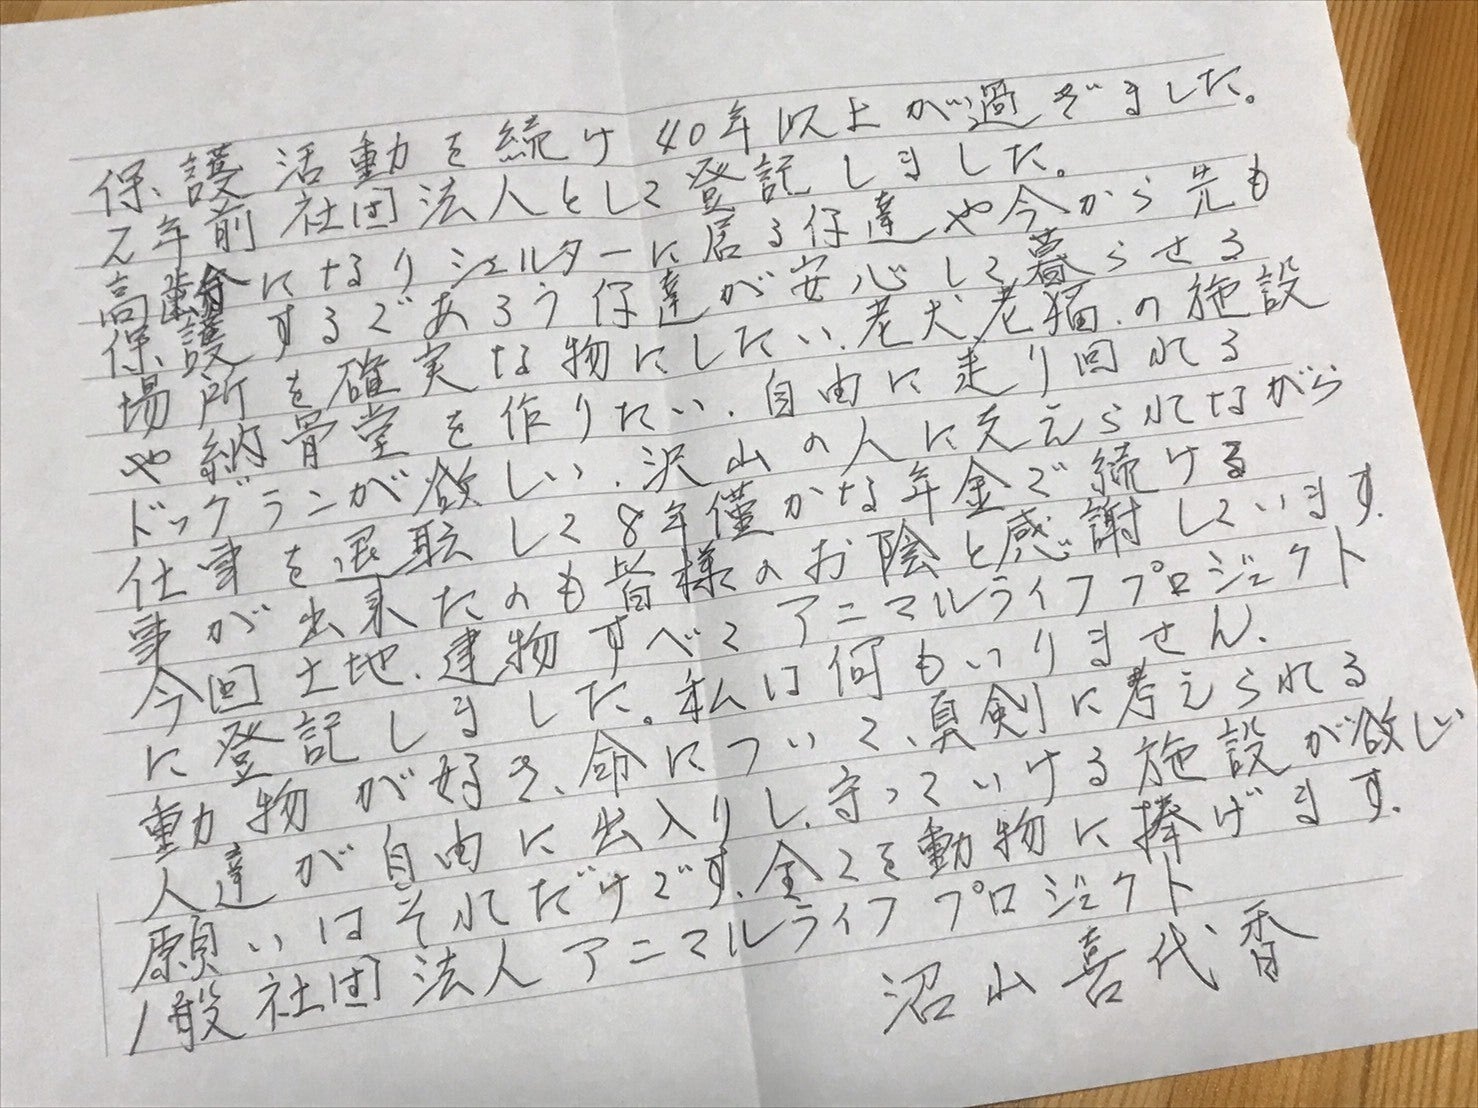 保護活動を続け40年以上が過ぎました。
2年前社団法人として登記しました。
高齢になりシェルターに居る仔達や今から先も
保護するであろう仔達が安心して暮らせる
場所を確実な物にしたい、老犬、老猫、の施設
や納骨堂を作りたい、自由に走り回れる
ドッグランが欲しい、沢山の人に支えられながら
仕事を退職して8年僅かな年金で続ける
事が出来たのも皆様のお陰と感謝しています。
今回土地、建物すべてアニマルライフプロジェクト
に登記しました。私は何もいりません、
動物が好き、命について、真剣に考えられる
人達が自由に出入りし、守っていける施設が欲しい
願いはそれだけです、全てを動物に捧げます。
一般社団法人アニマルライフプロジェクト
沼山喜代香